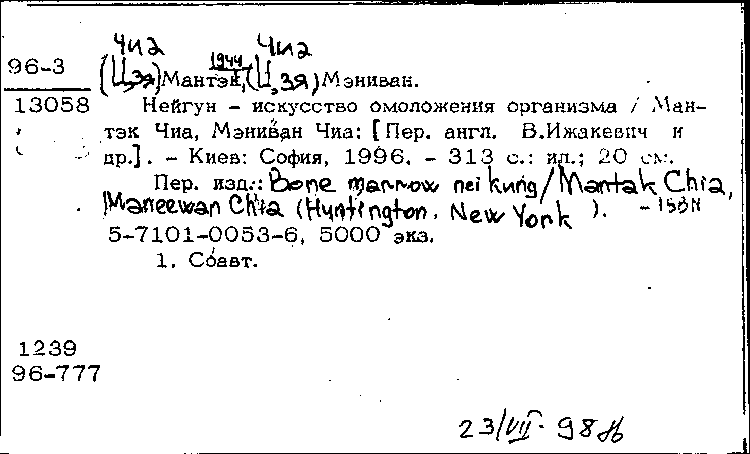 Чиа 1944 Чиа
96-3 (Ц,зя)Мантэк,(Ц,зя)Мэниван.
13058 Нейгун - искусство омоложения организма / Ман-
тэк Чиа, Мэниван Чиа: [Пер. англ. В.Ижакевич и
др.]. - Киев: София, 1996. - 313 с.: ил.; 20 см.
Пер. изд.: Bone marrow nei kung/Mantak Chia,
Maneewan Chia (Huntington, New York ). - ISBN
5-7101-0053-6, 5000 экз.
1. Соавт.
1239
96-777
23/VII- 98